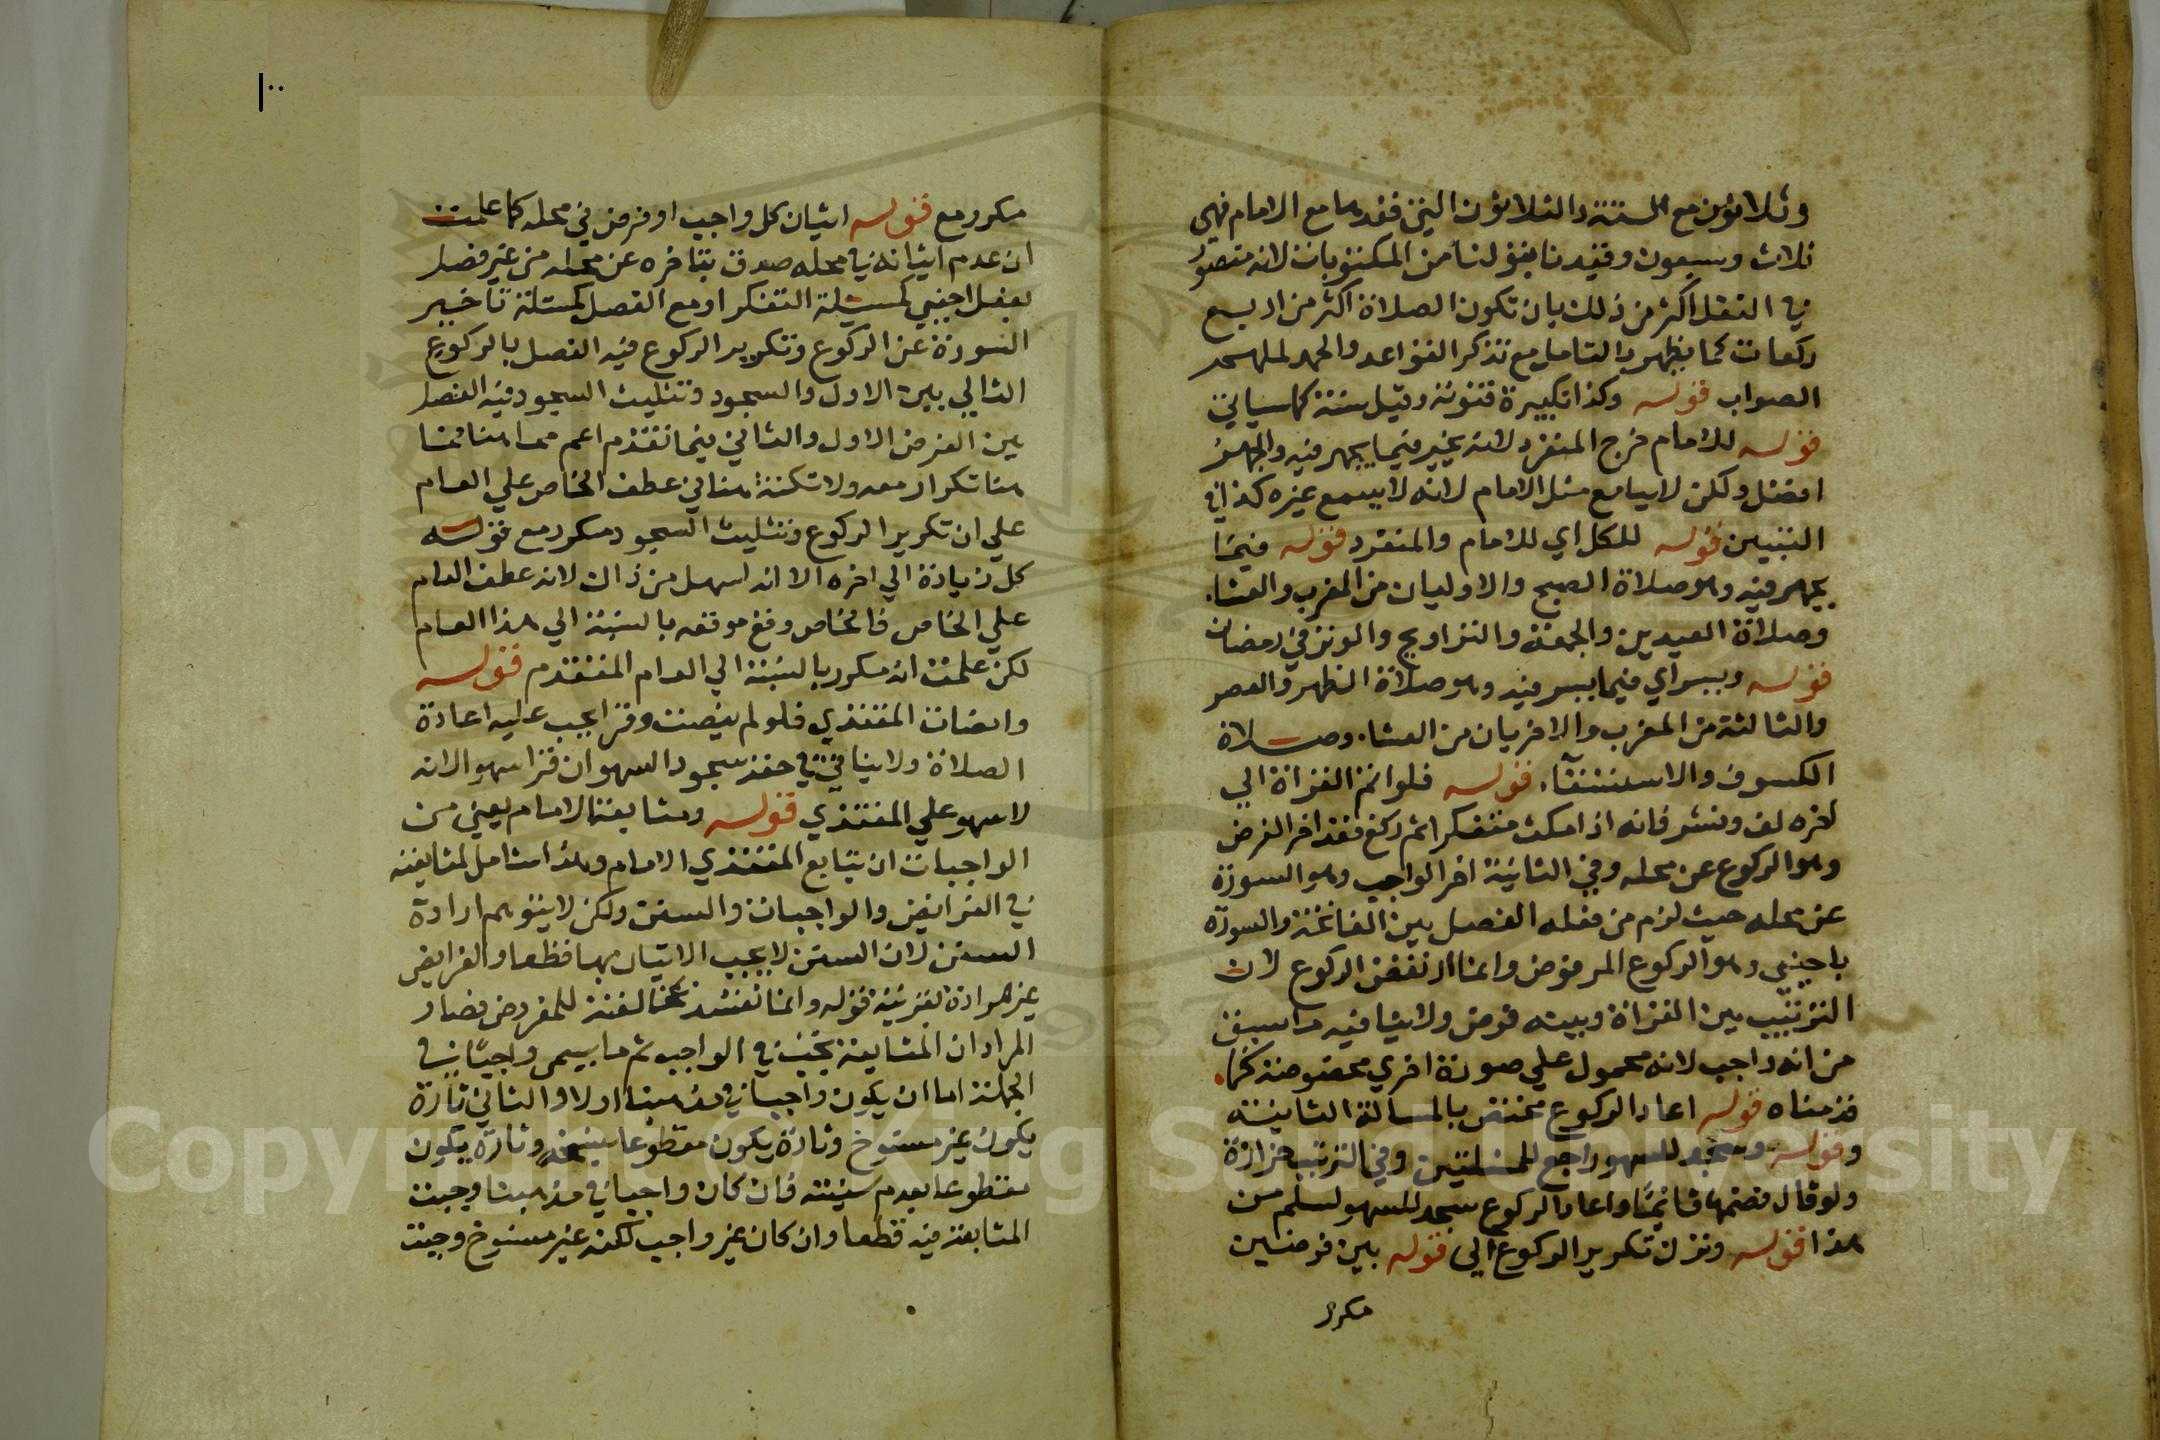 وثلاثون مع الستة والثلاثون التي فقدها مع الامام فهي
ثلاث وسبعون وقيدنا بقولنا من المكتوبات لانه متصور
في النفل اكثر من ذلك بان تكون الصلاة اكثر من اربع
ركعات كما يظهر بالتامل مع تذكر القواعد والحمد لملهم
الصواب قوله وكذا تكبيرة قنوته وقيل سنة كما سياتي
قوله للامام خرج المنفرد لانه يخير فيما يجهر فيه والجهر
افضل ولكن لا يسامع مثل الامام لانه لا يسمع غيره كذا في
التبيين قوله للكل اي للامام والمنفرد قوله فيما
يجهر فيه وهو صلاة الصبح والاوليان من المغرب والعشاء
وصلاة العيدين والجمعة والتراويح والوتر في رمضان
قوله ويسر اي فيما يسر فيه وهو صلاة الظهر والعصر
والثالثة من المغرب والاخريان من العشاء وصلاة
الكسوف والاستسقاء قوله فلو اتم القراة الى
اخره لف ونشر فانه اذا مكث متفكرا ثم ركع فقد اخر الفرض
وهو الركوع عن محله وفي الثانية اخر الواجب وهو السورة
عن محله حيث لزم من فعله الفصل بين الفاتحة والسورة
باجنبي وهو الركوع المرفوض وانما ارتفض الركوع لان
الترتيب بين القراة وبينه فرض ولا ينافيه ما سبق
من انه واجب لانه محمول على صورة اخري مخصوصة كما
قدمناه قوله اعاد الركوع مختص بالمسالة الثانية
وقوله وسجد للسهو راجع للمسئلتين وفي الترتيب حزازة
ولو قال فضمها قائما واعاد الركوع سجد للسهو لسلم من
هذا قوله وترك تكرير الركوع الى قوله بين فرضين
مكرر
١٠٠
مكرر مع قوله اتيان كل واجب او فرض في محله كما علمت
ان عدم اتيانه في محله صدق بتاخره عن محله من غير فصل
بفعل اجنبي كمسئلة التفكر او مع الفصل كمسئلة تاخير
السورة عن الركوع وتكرير الركوع فيه الفصل بالركوع
الثاني بين الاول والسجود وتثليث السجود فيه الفصل
بين الفرض الاول والثاني فيما تقدم اعم مما هنا فما
هنا تكرار معه ولا تكنه هنا في عطف الخاص علي العام
علي ان تكرير الركوع وتثليث السجود مكرر مع قوله
كل زيادة الى اخره الا انه اسهل من ذاك لانه عطف العام
علي الخاص فالخاص وقع موقعه بالنسبة الى هذا العام
لكن علمت انه مكرر بالنسبة الى العام المتقدم قوله
وانصات المقتدي فلو لم ينصت وقرا يجب عليه اعادة
الصلاة ولا يتاتى في حقه سجود السهو ان قرا سهوا لانه
لا سهو علي المقتدي قوله ومتابعة الامام يعني من
الواجبات ان يتابع المقتدي الامام وهذا شامل لمتابعته
في الفرايض والواجبات والسنن ولكن لا يتوهم ارادة
السنن لان السنن لا يجب الاتيان بها قطعا والفرايض
غير مرادة بقرينة قوله وانما تفسد بمخالفته للمفروض فصار
المراد ان المتابعة تجب في الواجب ثم ما يسمى واجبا في
الجملة اما ان يكون واجبا في مذهبنا اولا والثاني تارة
يكون غير منسوخ وتارة يكون مقطوعا بنسخه وتارة يكون
مقطوعا بعدم سنيته فان كان واجبا في مذهبنا وجبت
المتابعة فيه قطعا وان كان غير واجب لكنه غير منسوخ وجبت
Copyright © King Saud University